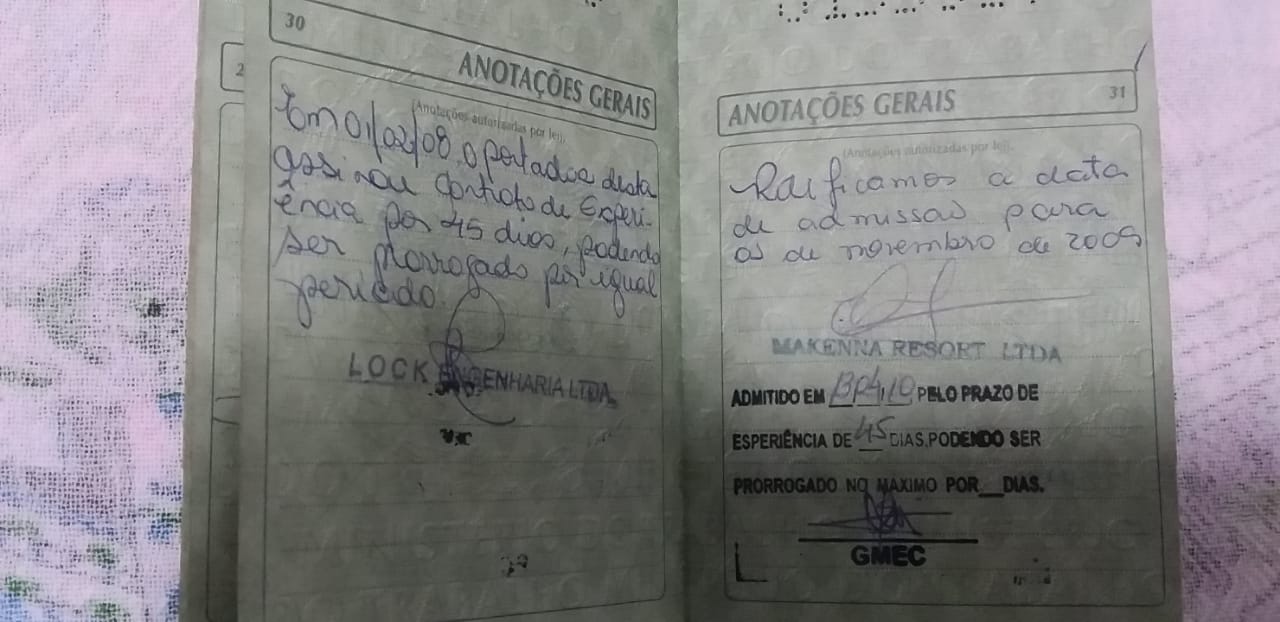 30
ANOTAÇÕES GERAIS
(Anotações autorizadas por lei).
Em 01/02/08, o portador desta
assinou contrato de Experi-
ência por 45 dias, podendo
ser prorrogado por igual
período.
LOCK ENGENHARIA LTDA.
2
31
ANOTAÇÕES GERAIS
(Anotações autorizadas por lei).
Raificamos a data
de admissão para
de novembro de 2009
MAKENNA RESORT LTDA
ADMITIDO EM PELO PRAZO DE
ESPERIÊNCIA DE 45 DIAS,PODENDO SER
PRORROGADO NO MAXIMO POR__DIAS.
GMEC